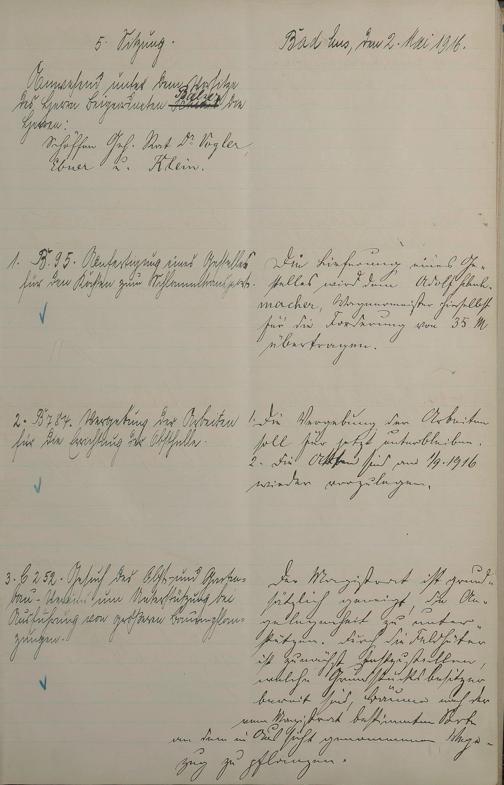 5. Sitzung.
Bad Ems, den 2. Mai 1916.
Anwesend unter dem Vorsitze
des Herrn Beigeordneten Balzer die
Herren:
Schöffen Geh. Rat Dr. Vogler,
Ebner u. Klein.
1. B. 95. Anfertigung eines Gestelles
für den Kasten zum Schlammtransport.
Die Lieferung eines Ge-
stelles wird dem Adolf
macher, Wagnermeister hierselbst
für die Forderung von 35 M
übertragen.
2. B 784. Vergebung der Arbeiten
für die Errichtung der
1. Die Vergebung der Arbeiten
soll für jetzt unterbleiben.
2. Die Akten sind am 1/9. 1916
wieder vorzulegen.
3. C 252. Gesuch des Obst- und Garten-
bau-Vereins um Unterstützung bei
Ausführung von größeren Baumpflan-
zungen.
Der Magistrat ist grund-
sätzlich geneigt, die An-
gelegenheit zu unter-
stützen. Durch die Feldhüter
ist zunächst festzustellen,
welche Grundstücksbesitzer
bereit sind, Bäume nach der
vom Magistrat bestimmten Sorte
an dem in Aussicht genommenen Wege-
zug zu pflanzen.